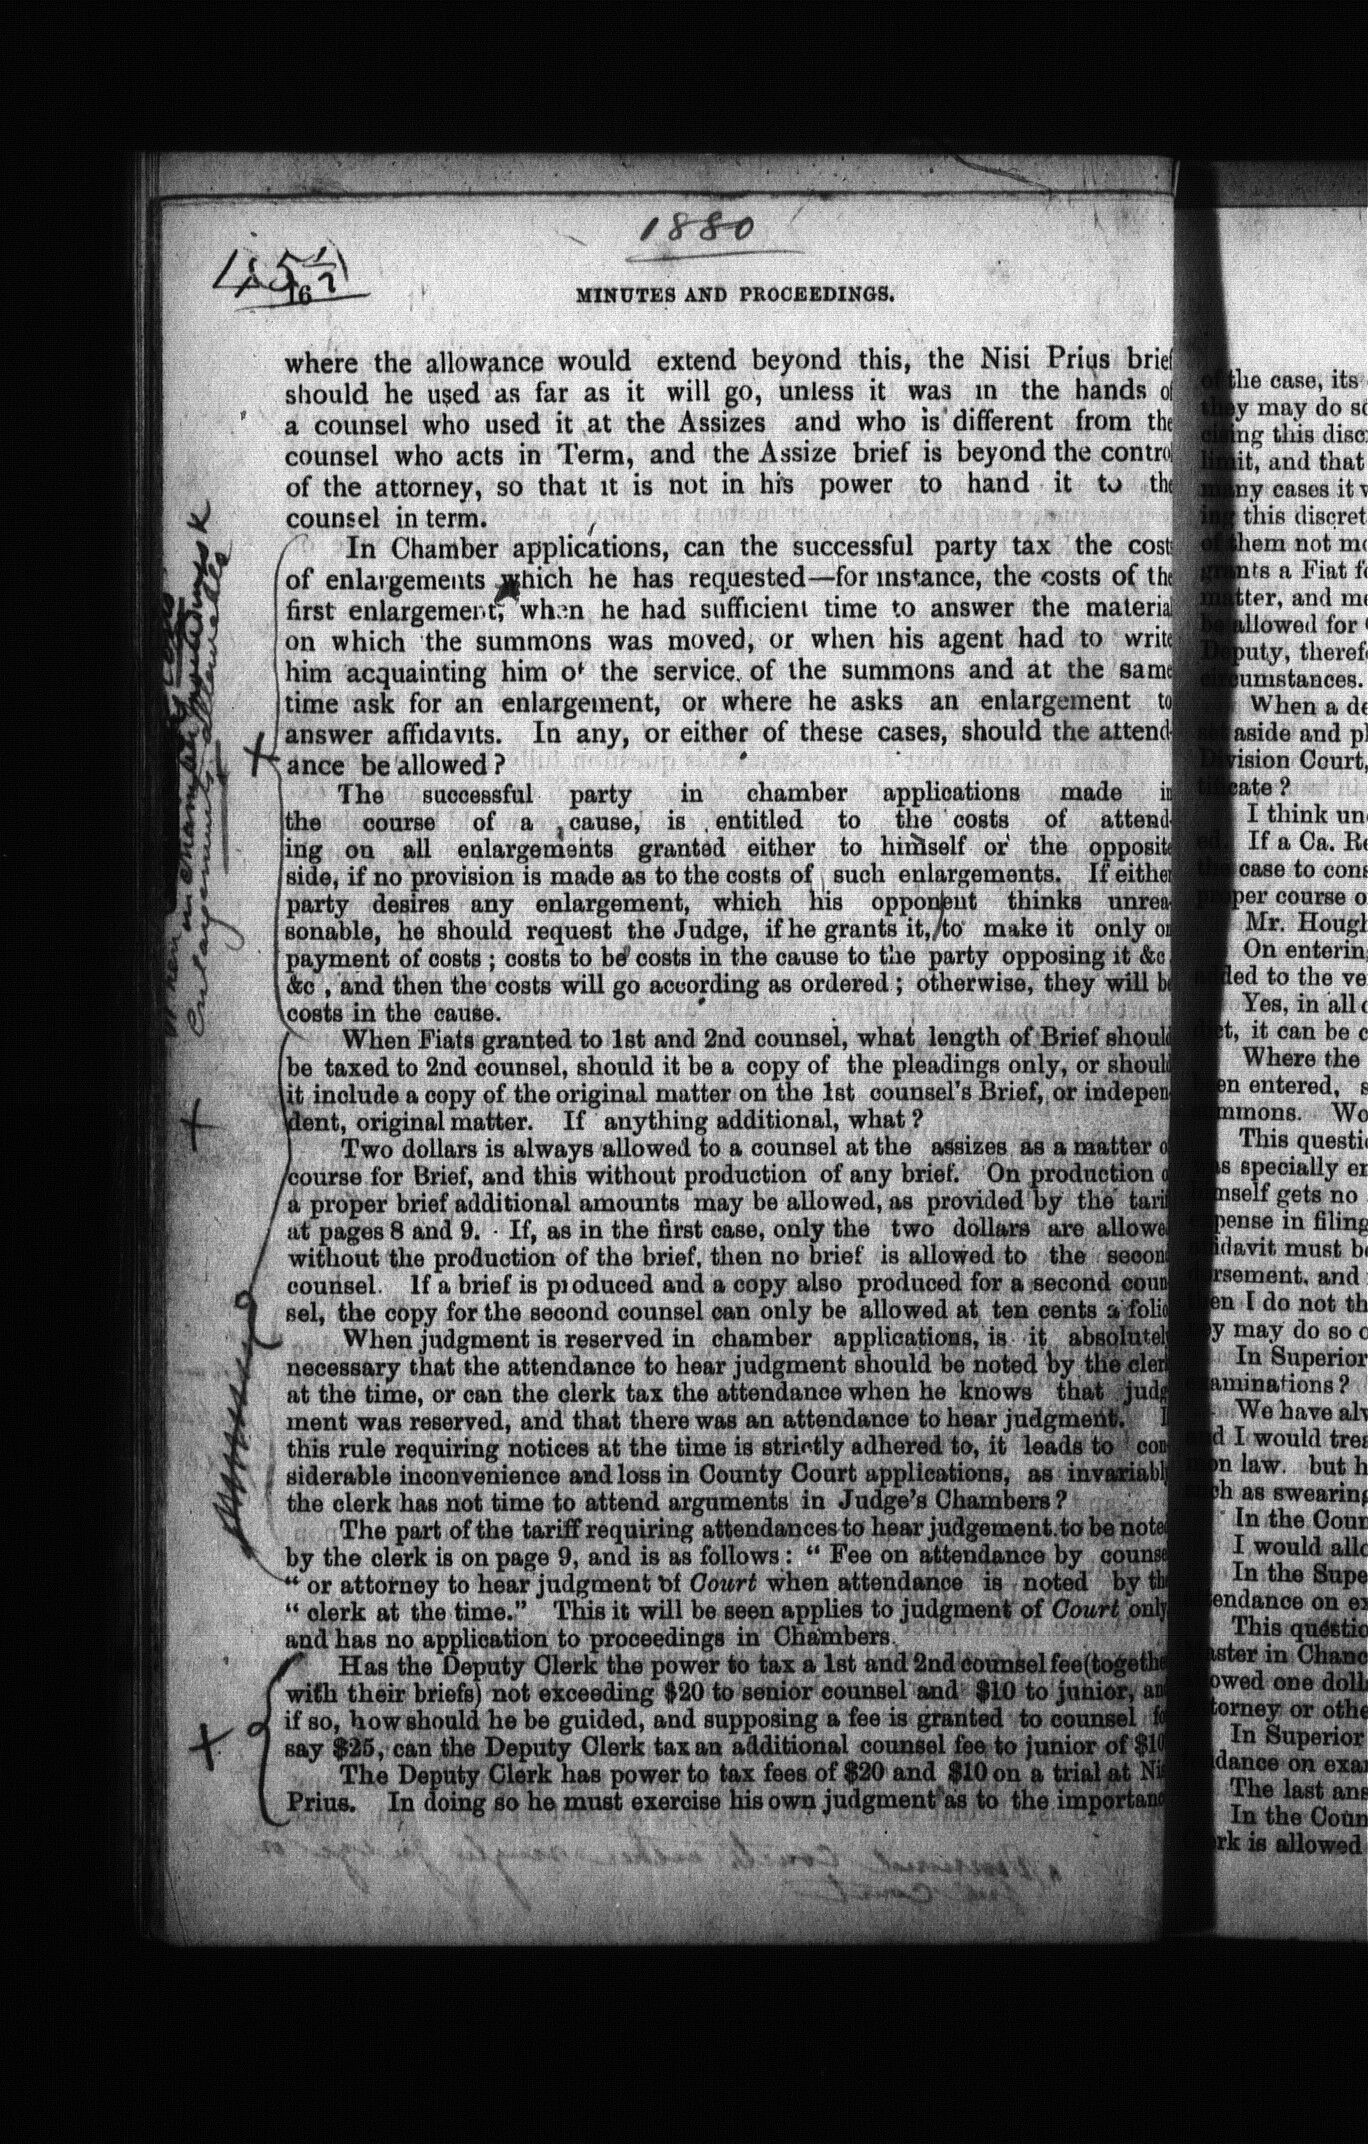 1880
16
MINUTES AND PROCEEDINGS.
where the allowance would extend beyond this, the Nisi Prius brief
should he used as far as it will go, unless it was in the hands of
a counsel who used it at the Assizes and who is different from the
counsel who acts in Term, and the Assize brief is beyond the contro
of the attorney, so that it is not in his power to hand it to the
counsel in term.
In Chamber applications, can the successful party tax the costs
of enlargements which he has requested—for instance, the costs of the
first enlargement, when he had sufficient time to answer the material
on which the summons was moved, or when his agent had to write
him acquainting him of the service of the summons and at the same
time ask for an enlargement, or where he asks an enlargement to
answer affidavits. In any, or either of these cases, should the attend-
ance be allowed?
The successful party in chamber applications made in
the course of a cause, is entitled to the costs of attend-
ing on all enlargements granted either to himself or the opposite
side, if no provision is made as to the costs of such enlargements. If either
party desires any enlargement, which his opponent thinks unrea-
sonable, he should request the Judge, if he grants it, to make it only on
payment of costs; costs to be costs in the cause to the party opposing it &c
&c, and then the costs will go according as ordered; otherwise, they will be
costs in the cause.
When Fiats granted to 1st and 2nd counsel, what length of Brief should
be taxed to 2nd counsel, should it be a copy of the pleadings only, or should
it include a copy of the original matter on the 1st counsel's Brief, or indepen-
dent, original matter. If anything additional, what?
Two dollars is always allowed to a counsel at the assizes as a matter o
course for Brief, and this without production of any brief. On production o
a proper brief additional amounts may be allowed, as provided by the tarif
at pages 8 and 9. If, as in the first case, only the two dollars are allowe
without the production of the brief, then no brief is allowed to the secon
counsel. If a brief is produced and a copy also produced for a second coun
sel, the copy for the second counsel can only be allowed at ten cents a folio
When judgment is reserved in chamber applications, is it absolutel
necessary that the attendance to hear judgment should be noted by the cler
at the time, or can the clerk tax the attendance when he knows that judg
ment was reserved, and that there was an attendance to hear judgment. I
this rule requiring notices at the time is strictly adhered to, it leads to con-
siderable inconvenience and loss in County Court applications, as invariabl
the clerk has not time to attend arguments in Judge's Chambers?
The part of the tariff requiring attendances to hear judgement to be note
by the clerk is on page 9, and is as follows: "Fee on attendance by counse
"or attorney to hear judgment of Court when attendance is noted by th
"clerk at the time." This it will be seen applies to judgment of Court only
and has no application to proceedings in Chambers.
Has the Deputy Clerk the power to tax a 1st and 2nd counsel fee (togethe
with their briefs) not exceeding $20 to senior counsel and $10 to junior, an
if so, how should he be guided, and supposing a fee is granted to counsel fo
say $25, can the Deputy Clerk tax an additional counsel fee to junior of $10
The Deputy Clerk has power to tax fees of $20 and $10 on a trial at Ni
Prius. In doing so he must exercise his own judgment as to the importanc
Enlargements allowable
of the case, its
they may do so
cising this disc
limit, and that
many cases it
ing this discret
of them not mo
grants a Fiat fo
matter, and me
be allowed for
Deputy, theref
circumstances.
When a de
set aside and pl
Division Court,
tificate?
I think un
ed. If a Ca. Re
the case to cons
proper course o
Mr. Hough
On entering
added to the ve
Yes, in all c
ict, it can be c
Where the
een entered, s
mmons. Wo
This questi
as specially en
mself gets no
pense in filing
idavit must be
rsement, and
en I do not th
y may do so o
In Superior
aminations?
We have alw
d I would trea
on law. but h
ch as swearing
In the Coun
I would allo
In the Supe
endance on ex
This questio
aster in Chanc
owed one doll
torney or othe
In Superior
dance on exa
The last ans
In the Coun
rk is allowed